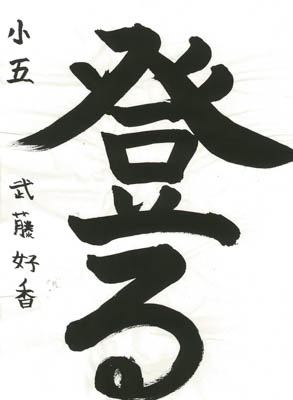 登る
小五
武藤好香